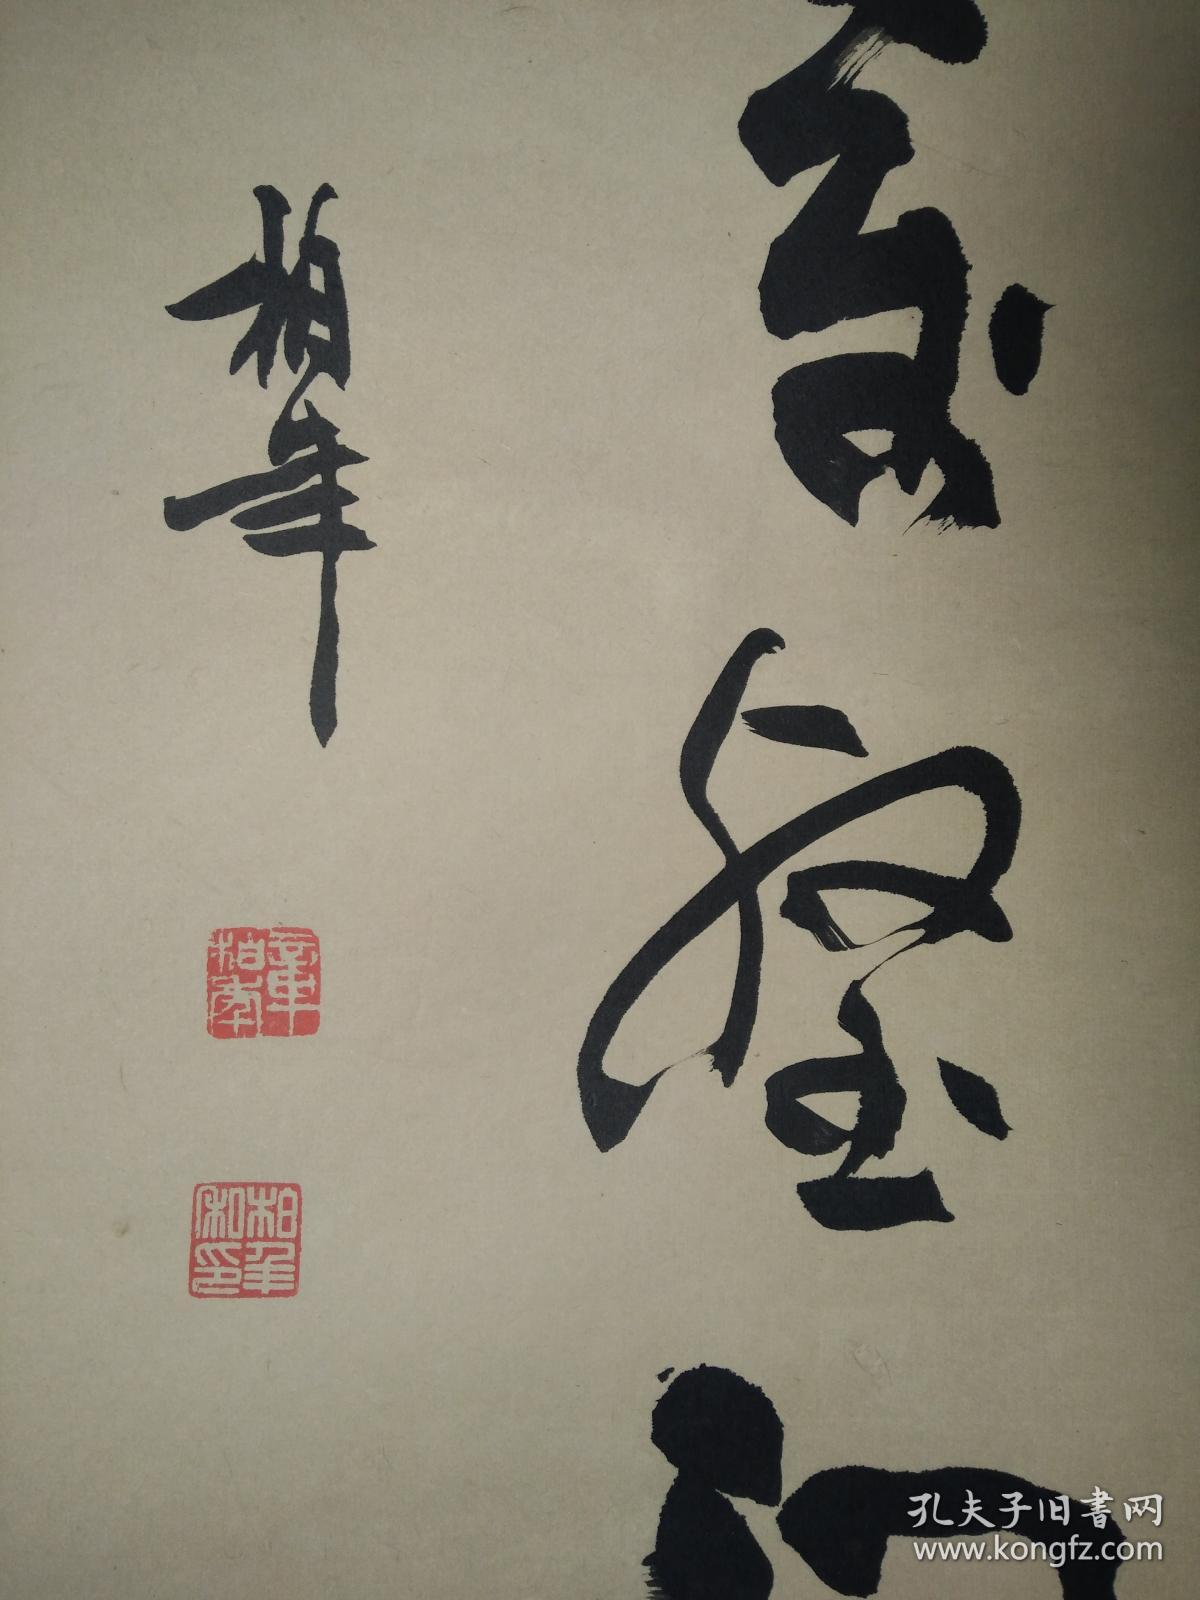 壑
柏年
章柏年
柏年私印
孔夫子旧書网
www.kongfz.com